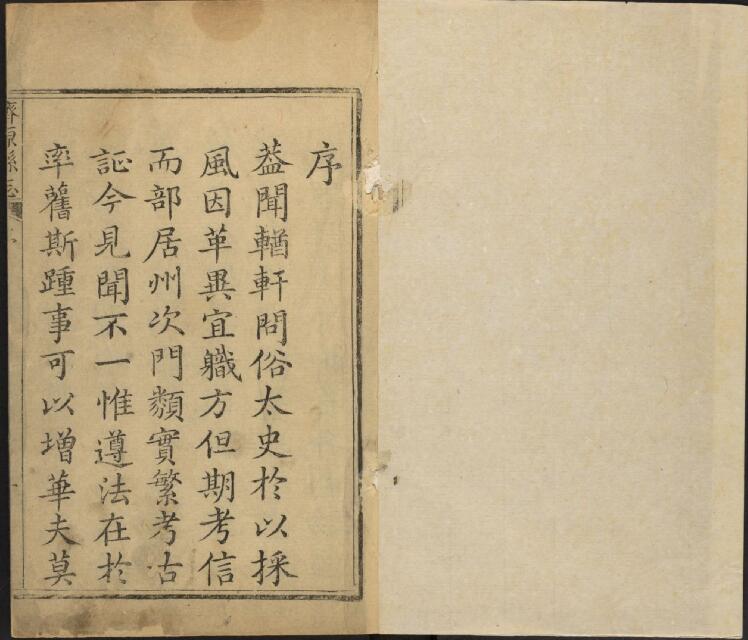 序
葢聞輶軒問俗太史於以採
風因革異宜職方但期考信
而部居州次門類實繁考古
証今見聞不一惟遵法在於
率舊斯踵事可以增華夫莫
濟源縣志